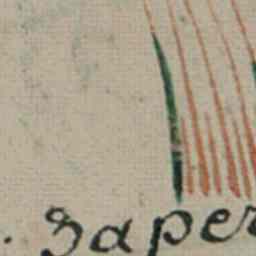 . Zaper